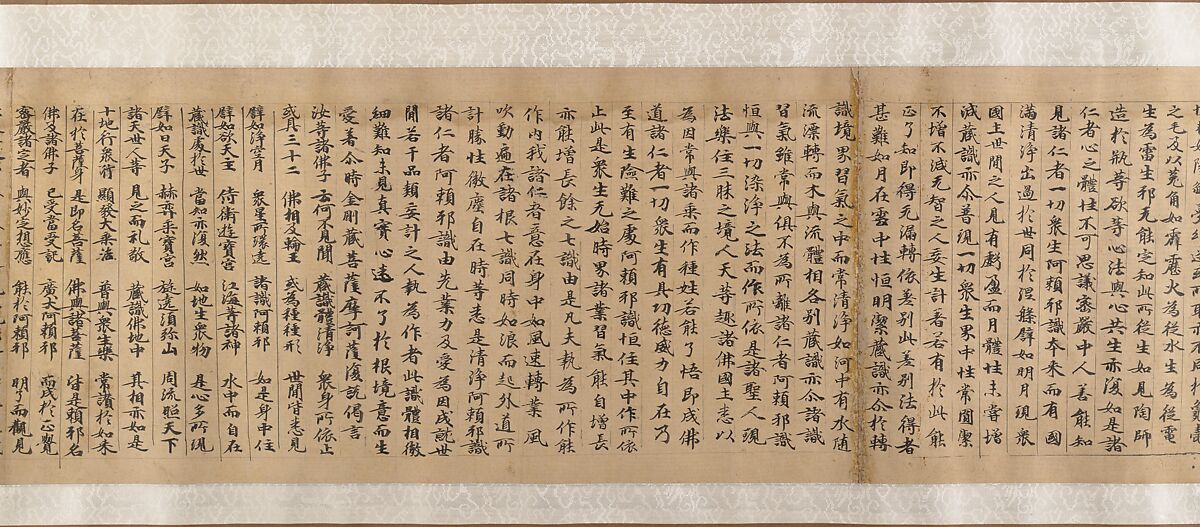 之毛及以菟角如霹靂火為從水生為從電
生為雷生邪无能定知此所從生如見陶師
造於瓶等欲等心法與心共生亦復如是諸
仁者心之體性不可思議密嚴中人善能知
見諸仁者一切衆生阿賴邪識本來而有圓
滿清淨出過於世同於涅槃譬如明月現衆
國土世間之人見有虧盈而月體性未嘗增
減藏識亦尒普現一切衆生界中性常圓潔
不增不減无智之人妄生計著若有於此能
正了知即得无漏轉依差別此差別法得者
甚難如月在雲中性恒明潔藏識亦尒於轉
識境界習氣之中而常清淨如河中有水随
流漂轉而木與流體相各別藏識亦尒諸識
習氣雖常與俱不為所雜諸仁者阿賴邪識
恒與一切染淨之法而作所依是諸聖人現
法樂住三昧之境人天等趣諸佛國土悉以
為因常與諸乘而作種姓若能了悟即成佛
道諸仁者一切衆生有具功德威力自在乃
至有生險難之處阿賴邪識恒住其中作所依
止此是衆生无始時界諸業習氣能自增長
亦能增長餘之七識由是凡夫執為所作能
作內我諸仁者意在身中如風速轉業風
吹動遍在諸根七識同時如浪而起外道所
計勝性微塵自在時等悉是清淨阿賴邪識
諸仁者阿賴邪識由先業力及愛為因成就世
間若干品類妄計之人執為作者此識體相微
細難知未見真實心迷不了於根境意而生
愛著尒時金剛藏菩薩摩訶薩復說偈言
汝等諸佛子 云何不見聞 藏識體清淨 衆身所依止
或具三十二 佛相及輪王 或為種種形 世間皆悉見
譬如淨空月 衆星所環遶 諸識阿賴邪 如是身中住
譬如欲天主 侍衛遊寶宮 江海等諸神 水中而自在
藏識處於世 當知亦復然 如地生衆物 是心多所現
譬如日天子 赫弈乘寶宮 旋遶須弥山 周流照天下
諸天世人等 見之而礼敬 藏識佛地中 其相亦如是
十地行衆行 顯發大乘法 普與衆生樂 常讃於如來
在於菩薩身 是即名菩薩 佛與諸菩薩 皆是賴邪名
佛及諸佛子 已受當受記 廣大阿賴邪 而成於正覺
密嚴諸定者 與妙定相應 能於阿賴邪 明了而觀見